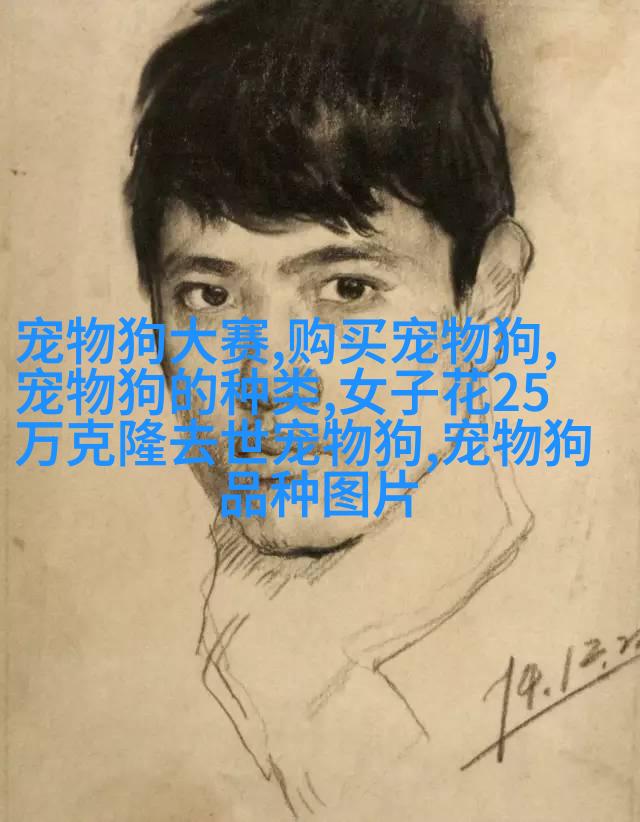 宠物狗大赛,购买宠物狗,
宠物狗的种类,女子花25
万克隆去世宠物狗,宠物狗
品种图片